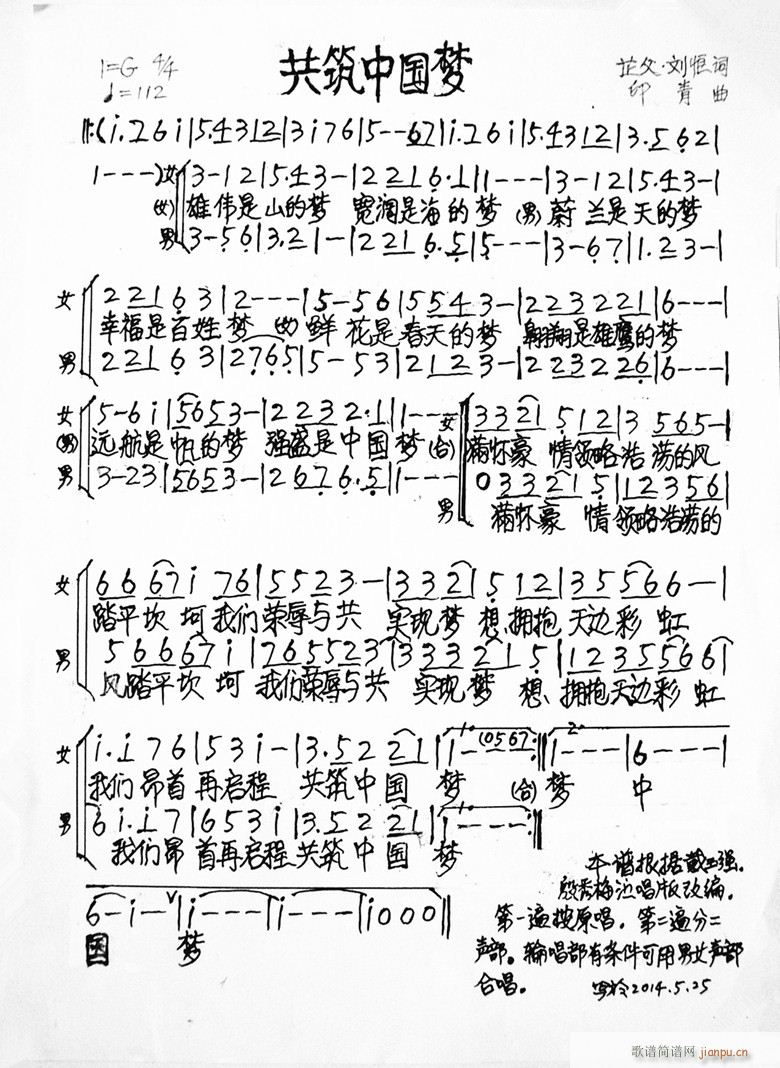 共筑中国梦
1=G 4/4
♩=112
芷父·刘恒词
印青曲
‖:(i.7 6 i|5.4 3 1 2|3 i 7 6|5--6 7|i.7 6 i|5.4 3 1 2|3.5 6 2|
1---)女 3-1 2|5.4 3-|2 2 1 6.1|1---|3-1 2|5.4 3-|
(女) 雄伟是山的梦 宽阔是海的梦 (男) 蔚兰是天的梦
男 3-5 6|3.2 1-|2 2 1 6.5|5---|3-6 7|1.2 3-|
女 2 2 1 6 3|2---|5-5 6|5 5 4 3-|2 2 3 2 2 1|6---|
幸福是百姓梦 (女) 鲜花是春天的梦 翱翔是雄鹰的梦
男 2 2 1 6 3|2 7 6 5|5-5 3|2 1 2 3-|2 2 3 2 2 6|6---|
女 5-6 i|5 6 5 3-|2 2 3 2.1|1---| 女 3 3 2 1 5 1 2|3 5 6 5-|
(男) 远航是帆的梦 强盛是中国梦 (合) 满怀豪情领略浩荡的风
男 3-2 3|5 6 5 3-|2 6 7 6.5|1---| 男 0 3 3 2 1 5|1 2 3 5 6|
满怀豪 情领略浩荡的
女 6 6 6 7 i 7 6|5 5 2 3-|3 3 2 5 1 2|3 5 5 6 6--|
踏平坎坷我们荣辱与共 实现梦想拥抱天边彩虹
男 5 6 6 6 7 i|7 6 5 5 2 3|3 3 3 2 1 5|1 2 3 5 5 6 6|
风踏平坎坷 我们荣辱与共 实现梦想、拥抱天边彩虹
女 i.i 7 6|5 3 i-|3.5 2 2 2 1|1.1-(0 5 6 7:‖2.1---|6---|
我们昂首再启程 共筑中国梦 (合) 梦 中
男 6 i.i 7|6 5 3 i|3.5 2 2 2 1|1.1---:‖
我们昂首再启程共筑中国 梦
6-i-∨|i---|i---|i 0 0 0‖
国 梦
本谱根据戴玉强.
殷秀梅边唱版改编.
第一遍按原唱. 第二遍分二
声部。轮唱部有条件可用男女声部
合唱。
2014.5.25
歌谱简谱网 jianpu.cn